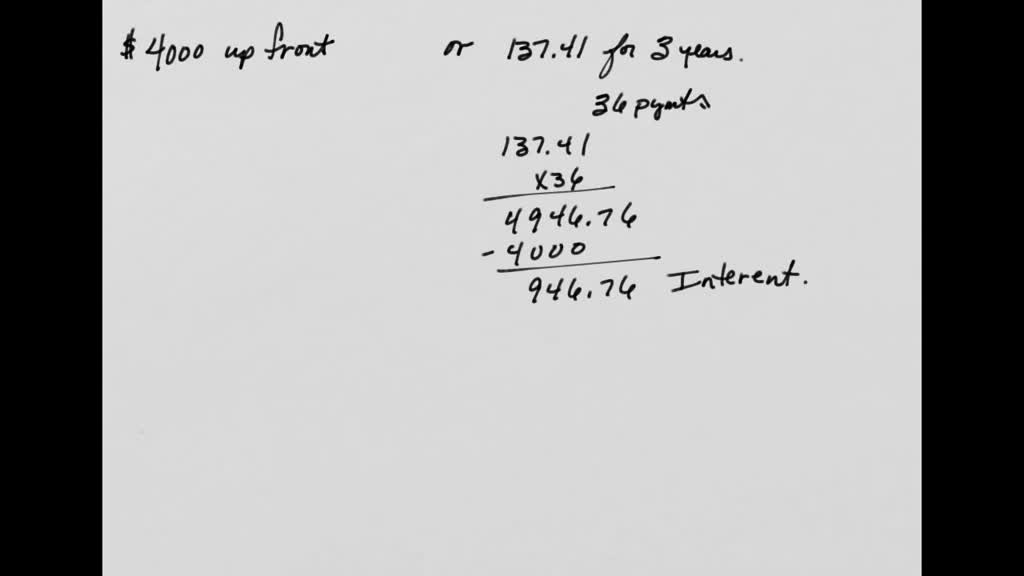 $ 4000 up front or 137.41 for 3 years.
36 pymts
137.41
x36
4946.76
- 4000
946.76 Interent.